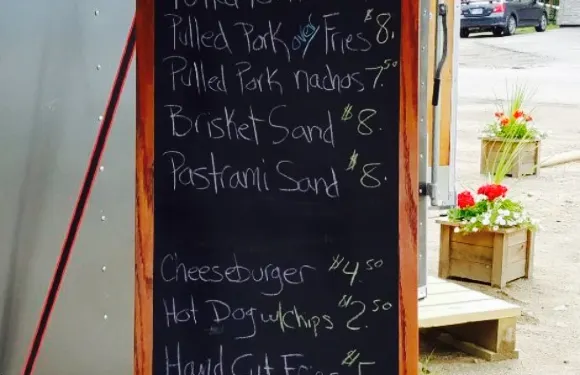 Pulled Pork over Fries $8.
Pulled Pork nachos 7.50
Brisket Sand $8.
Pastrami Sand $8.
Cheeseburger $4.50
Hot Dog w/chips $2.50
Hand Cut Fries $5